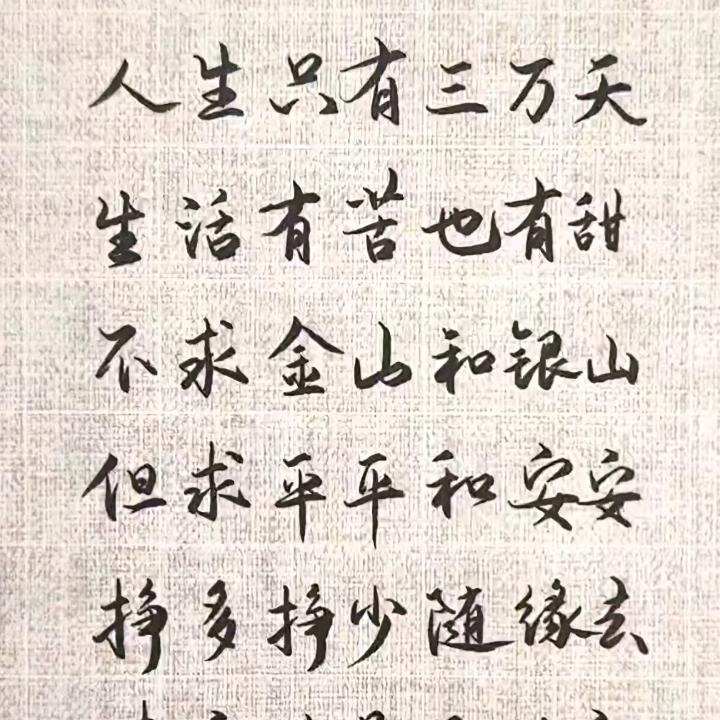 人生只有三万天
生活有苦也有甜
不求金山和银山
但求平平和安安
挣多挣少随缘去